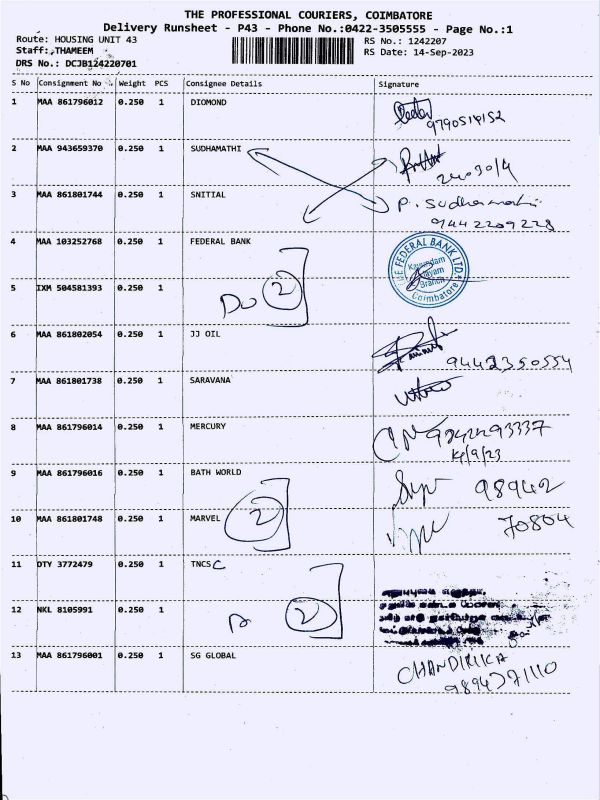 THE PROFESSIONAL COURIERS, COIMBATORE
Delivery Runsheet - P43 - Phone No.:0422-3505555 - Page No.:1
Route: HOUSING UNIT 43 RS No.: 1242207
Staff:,THAMEEM RS Date: 14-Sep-2023
DRS No.: DCJB124220701
S No Consignment No Weight PCS Consignee Details Signature
1 MAA 861796012 0.250 1 DIOMOND
2 MAA 943659370 0.250 1 SUDHAMATHI
3 MAA 861801744 0.250 1 SNITIAL P. Sudhamathi
9442209228
4 MAA 103252768 0.250 1 FEDERAL BANK THE FEDERAL BANK LTD.
Branch
Coimbatore
5 IXM 504581393 0.250 1 2
6 MAA 861802054 0.250 1 JJ OIL 9442350554
7 MAA 861801738 0.250 1 SARAVANA
8 MAA 861796014 0.250 1 MERCURY
14/9/23
9 MAA 861796016 0.250 1 BATH WORLD 98942
10 MAA 861801748 0.250 1 MARVEL 2 70804
11 DTY 3772479 0.250 1 TNCSC
12 NKL 8105991 0.250 1 2
13 MAA 861796001 0.250 1 SG GLOBAL CHANDIRIKA
9894771110